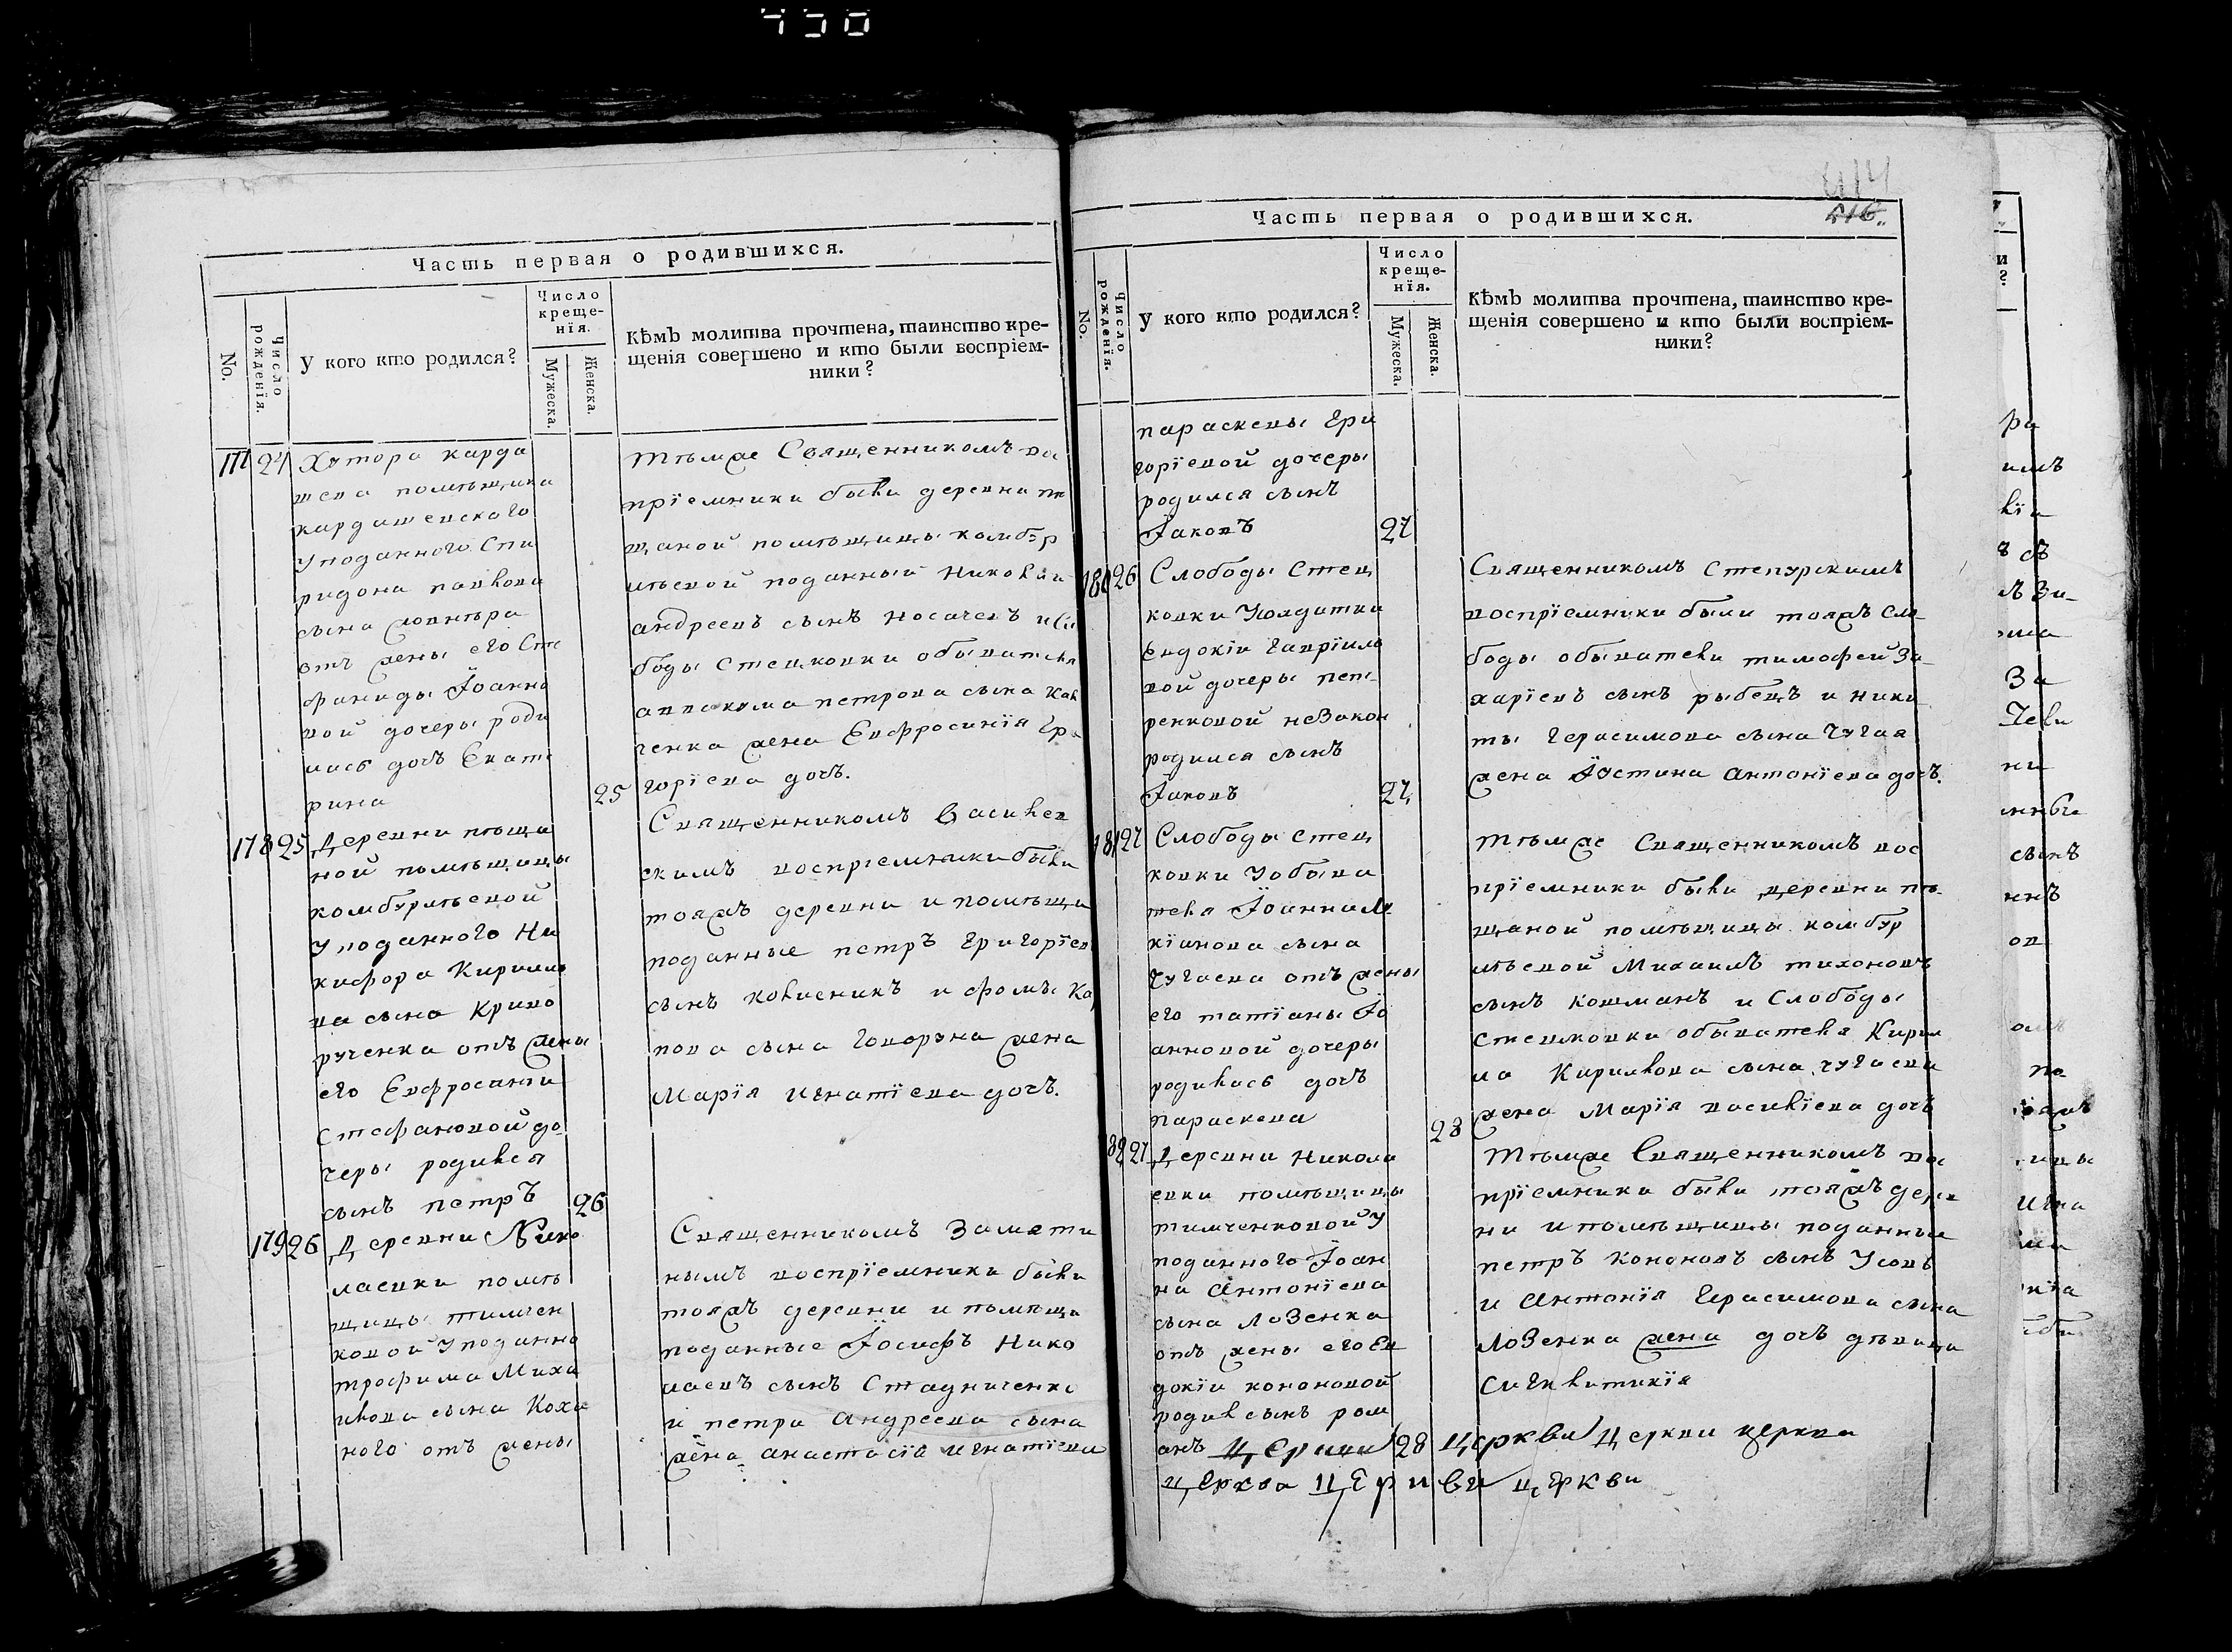 450
Часть первая о родившихся.
No.
Число рожденїя.
У кого кто родился?
Число
креще-
нїя.
Мужеска.
Женска.
Кѣмъ молитва прочтена, таинство кре-
щенїя совершено и кто были воспрїем-
ники?
177 24 Хутора карда
шева помѣщика
кардашевскаго
У поданного Спи
ридона павлова
сына
отъ жены его Сте
фаниды Їоанно
вой дочеры роди
лась дочъ Екате
рина 25
Тѣмже Священникомъ во
прїемники были деревни пѣ
щаной помѣщицы комбур
лѣевой поданный Николай
андреевъ сынъ носачевъ и Сло
боды Стецковки обывателя
аввакума петрова сына
ченка жена Евфросинїя Гри
горїева дочъ.
178 25 Деревни пѣща
ной помѣщицы
комбурлѣевой
У поданного Ни
кифора Кирилло
ва сына Криво
рученка отъ жены
его Евфросинїи
Стефановой до
черы родился
сынъ петръ 26
Священникомъ Василев
скимъ воспрїемники были
тояжъ деревни и помѣщи
поданные петръ Григорїев
сынъ колисникъ и фомы Ка
пова сына Говоруна жена
Марїя Игнатїева дочъ.
179 26 Деревни Нико
лаевки помѣ
щицы тимчен
ковой У поданно
трофима Миха
илова сына Коха
ного отъ жены
Священникомъ Замяти
нымъ воспрїемники были
тояжъ деревни и помѣщи
поданные Їосифъ Нико
лаевъ сынъ Стадниченко
и петра андреева сына
жена анастасїя Игнатїева
414
416.
Часть первая о родившихся.
No.
Число рожденїя.
У кого кто родился?
Число
креще-
нїя.
Мужеска.
Женска.
Кѣмъ молитва прочтена, таинство кре-
щенїя совершено и кто были воспрїем-
ники?
параскевы Гри
горїевой дочеры
родился сынъ
Їаковъ 27
180 26 Слободы Стец
ковки У солдатки
Евдокїи Гаврїило
вой дочеры пет-
ренковой незакон
родился сынъ
Їаковъ 27
Священникомъ Степурскимъ
воспрїемники были тояжъ сло
боды обыватели тимофей За-
харїевъ сынъ рыбецъ и ники
ты Герасимова сына Чугая
жена Їустина антонїева дочъ.
181 27 Слободы Стец
ковки У обыва
теля Їоанна Лу
кїанова сына
Чугаева отъ жены
его татїаны Їо
анновой дочеры
родилась дочъ
параскева 28
Тѣмже Священникомъ вос
прїемники были деревни пѣ
щаной помѣщицы комбур
лѣевой Михаилъ тихоновъ
сынъ кошманъ и Слободы
Стецковки обывателя Кирил
ла Кирилова сына чугаева
жена Марїя василїева дочъ
182 27 Деревни Никола
евки помѣщицы
тимченковой У
поданного Їоан
на Антонїева
сына лозенка
отъ жены его Ев
докїи кононовой
родил сынъ ром
анъ 28
Тѣмже Священникомъ вос
прїемники были тояжъ дерев
ни и помѣщицы поданные
петръ Кононовъ сынъ Усовъ
и Антонїя Герасимова сына
лозенка жена дочъ дѣвица
Сигклитикїя
Церкви Церкви Церкви церква
церква ЦЕркви церкви